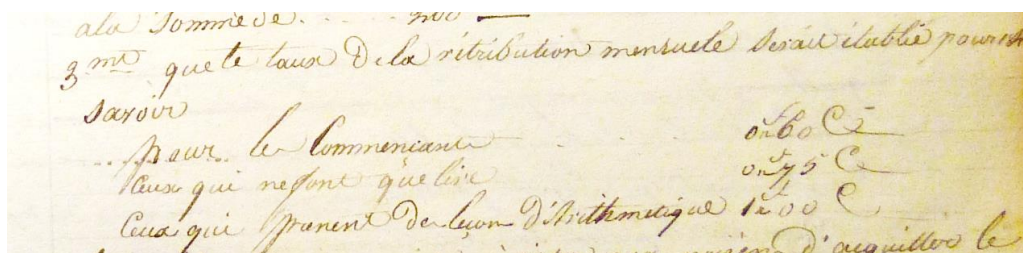 ala Somme de . . . . 200 —
3.me que le taux De la rétribution mensuele Serait établie pour
Savoir
pour les Commencants . . . 0f60 C
Ceux qui ne font que lire 0f75 C
Ceux qui prenent De leçon D'Arithmetique 1f00 C
d'acquitter le